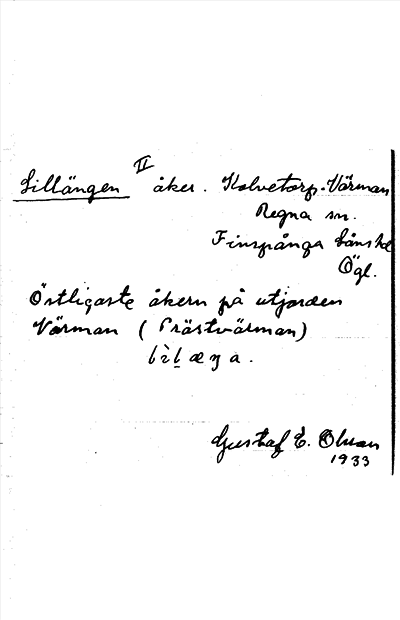 Lillängen II åker. Kolvetorp. Värman
Regna sn.
Finspånga läns hd
Ögl.
Östligaste åkern på utjorden
Värman (Prästvärman)
Gustaf E. Olsson
1933